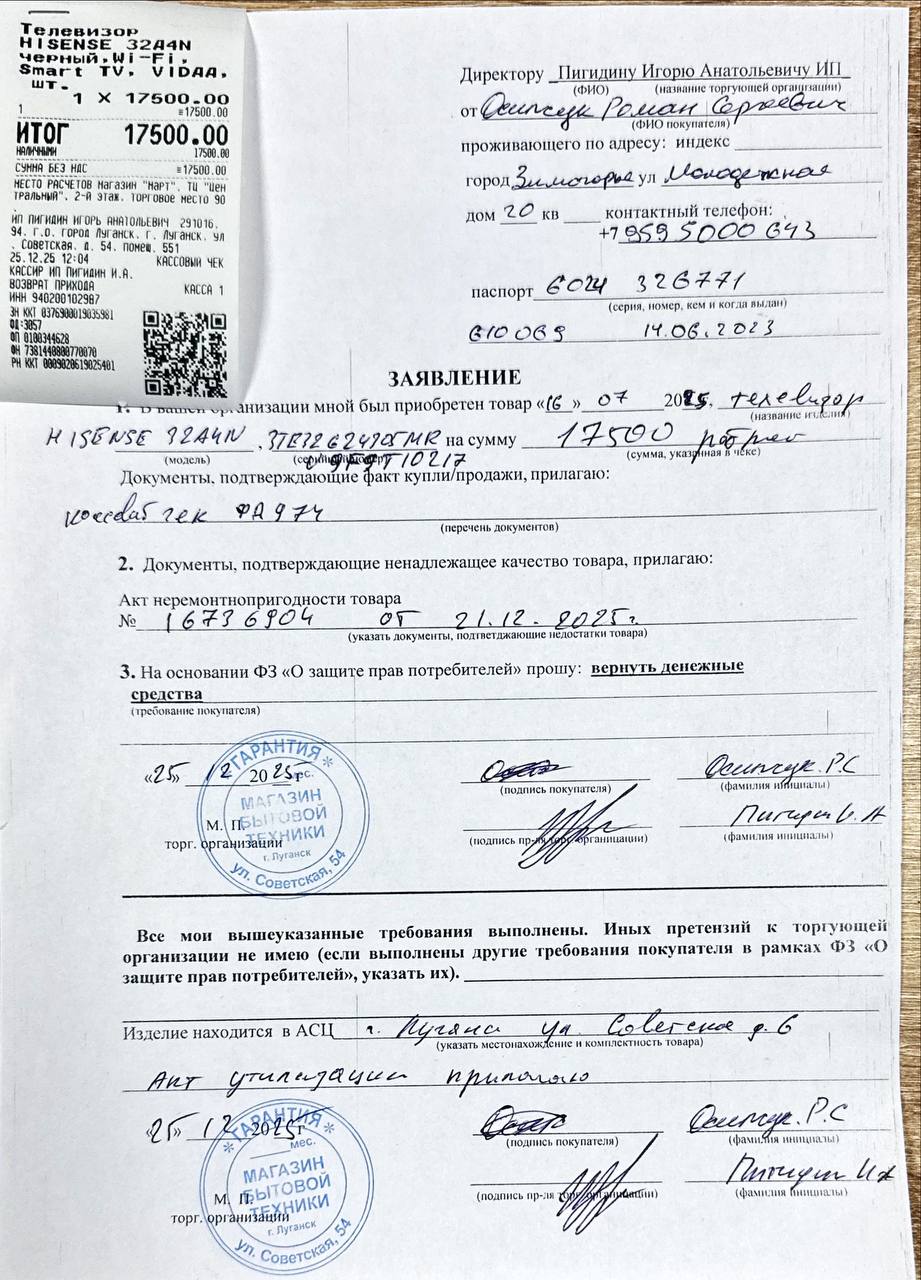 Телевизор
HISENSE 32A4N
черный,Wi-Fi,
Smart TV, VIDAA,
шт.
1 X 17500.00
1 =17500.00
ИТОГ 17500.00
НАЛИЧНЫМИ 17500.00
СУММА БЕЗ НДС =17500.00
МЕСТО РАСЧЕТОВ Магазин "Март", ТЦ "Цен
тральный", 2-й этаж, торговое место 90
.
ИП ПИГИДИН ИГОРЬ АНАТОЛЬЕВИЧ 291016,
94, Г.О. ГОРОД ЛУГАНСК, Г. ЛУГАНСК, УЛ
. Советская, д. 54, помещ. 551
25.12.25 12:04 КАССОВЫЙ ЧЕК
КАССИР ИП ПИГИДИН И.А.
ВОЗВРАТ ПРИХОДА КАССА 1
ИНН 940200102987
ЗН ККТ 0376900019035981
ФД:3057
ФП 0100344628
ФН 7381440800770070
РН ККТ 0009020619025401
Директору Пигидину Игорю Анатольевичу ИП
(ФИО) (название торгующей организации)
от Осипчук Роман Сергеевич
(ФИО покупателя)
проживающего по адресу: индекс
город Зимогорье ул Молодежная
дом 20 кв контактный телефон:
+7959 5000 643
паспорт 6024 326771
(серия, номер, кем и когда выдан)
610069 14.06.2023
ЗАЯВЛЕНИЕ
1. В вашей организации мной был приобретен товар «16» 07 2025, телевизор
(название изделия)
HISENSE 32A4N , на сумму 17500
(модель) (сумма, указанная в чеке)
Документы, подтверждающие факт купли/продажи, прилагаю:
чек ФД 974
(перечень документов)
2. Документы, подтверждающие ненадлежащее качество товара, прилагаю:
Акт неремонтнопригодности товара
№ 16736904 от 21.12.2025г.
(указать документы, подтветджающие недостатки товара)
3. На основании ФЗ «О защите прав потребителей» прошу: вернуть денежные
средства
(требование покупателя)
«25» 12 2025г Осипчук.Р.С
(подпись покупателя) (фамилия инициалы)
ГАРАНТИЯ
мес.
МАГАЗИН
БЫТОВОЙ
ТЕХНИКИ
г. Луганск
ул. Советская, 54
М. П. Пигидин И.А
торг. организации (подпись пр-ля торг. организации) (фамилия инициалы)
Все мои вышеуказанные требования выполнены. Иных претензий к торгующей
организации не имею (если выполнены другие требования покупателя в рамках ФЗ «О
защите прав потребителей», указать их).
Изделие находится в АСЦ г. ул. Советская д. 6
(указать местонахождение и комплектность товара)
Акт утилизации прилагаю
«25» 12 2025г Осипчук.Р.С
(подпись покупателя) (фамилия инициалы)
ГАРАНТИЯ
мес.
МАГАЗИН
БЫТОВОЙ
ТЕХНИКИ
г. Луганск
ул. Советская, 54
М. П. Пигидин И.А
торг. организации (подпись пр-ля торг. организации) (фамилия инициалы)